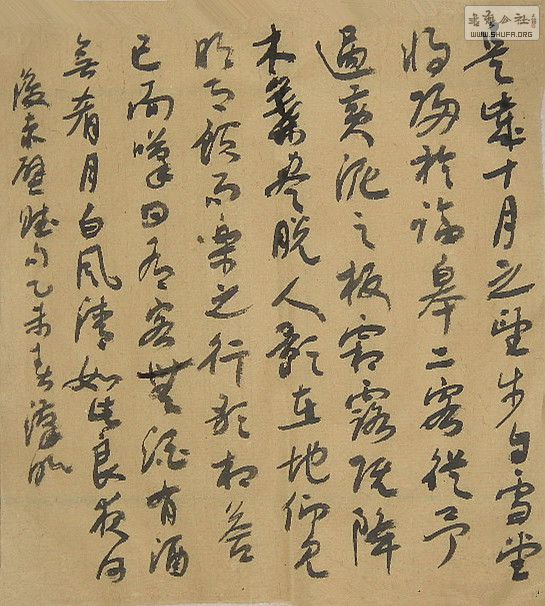 是歲十月之望步自雪堂
將歸於臨皋二客從予
過黃泥之板霜露既降
木葉盡脫人影在地仰見
明月顧而樂之行歌相答
已而嘆曰有客無酒有酒
無肴月白風清如此良夜何
後赤壁賦句乙未春
书艺公社
WWW.SHUFA.ORG